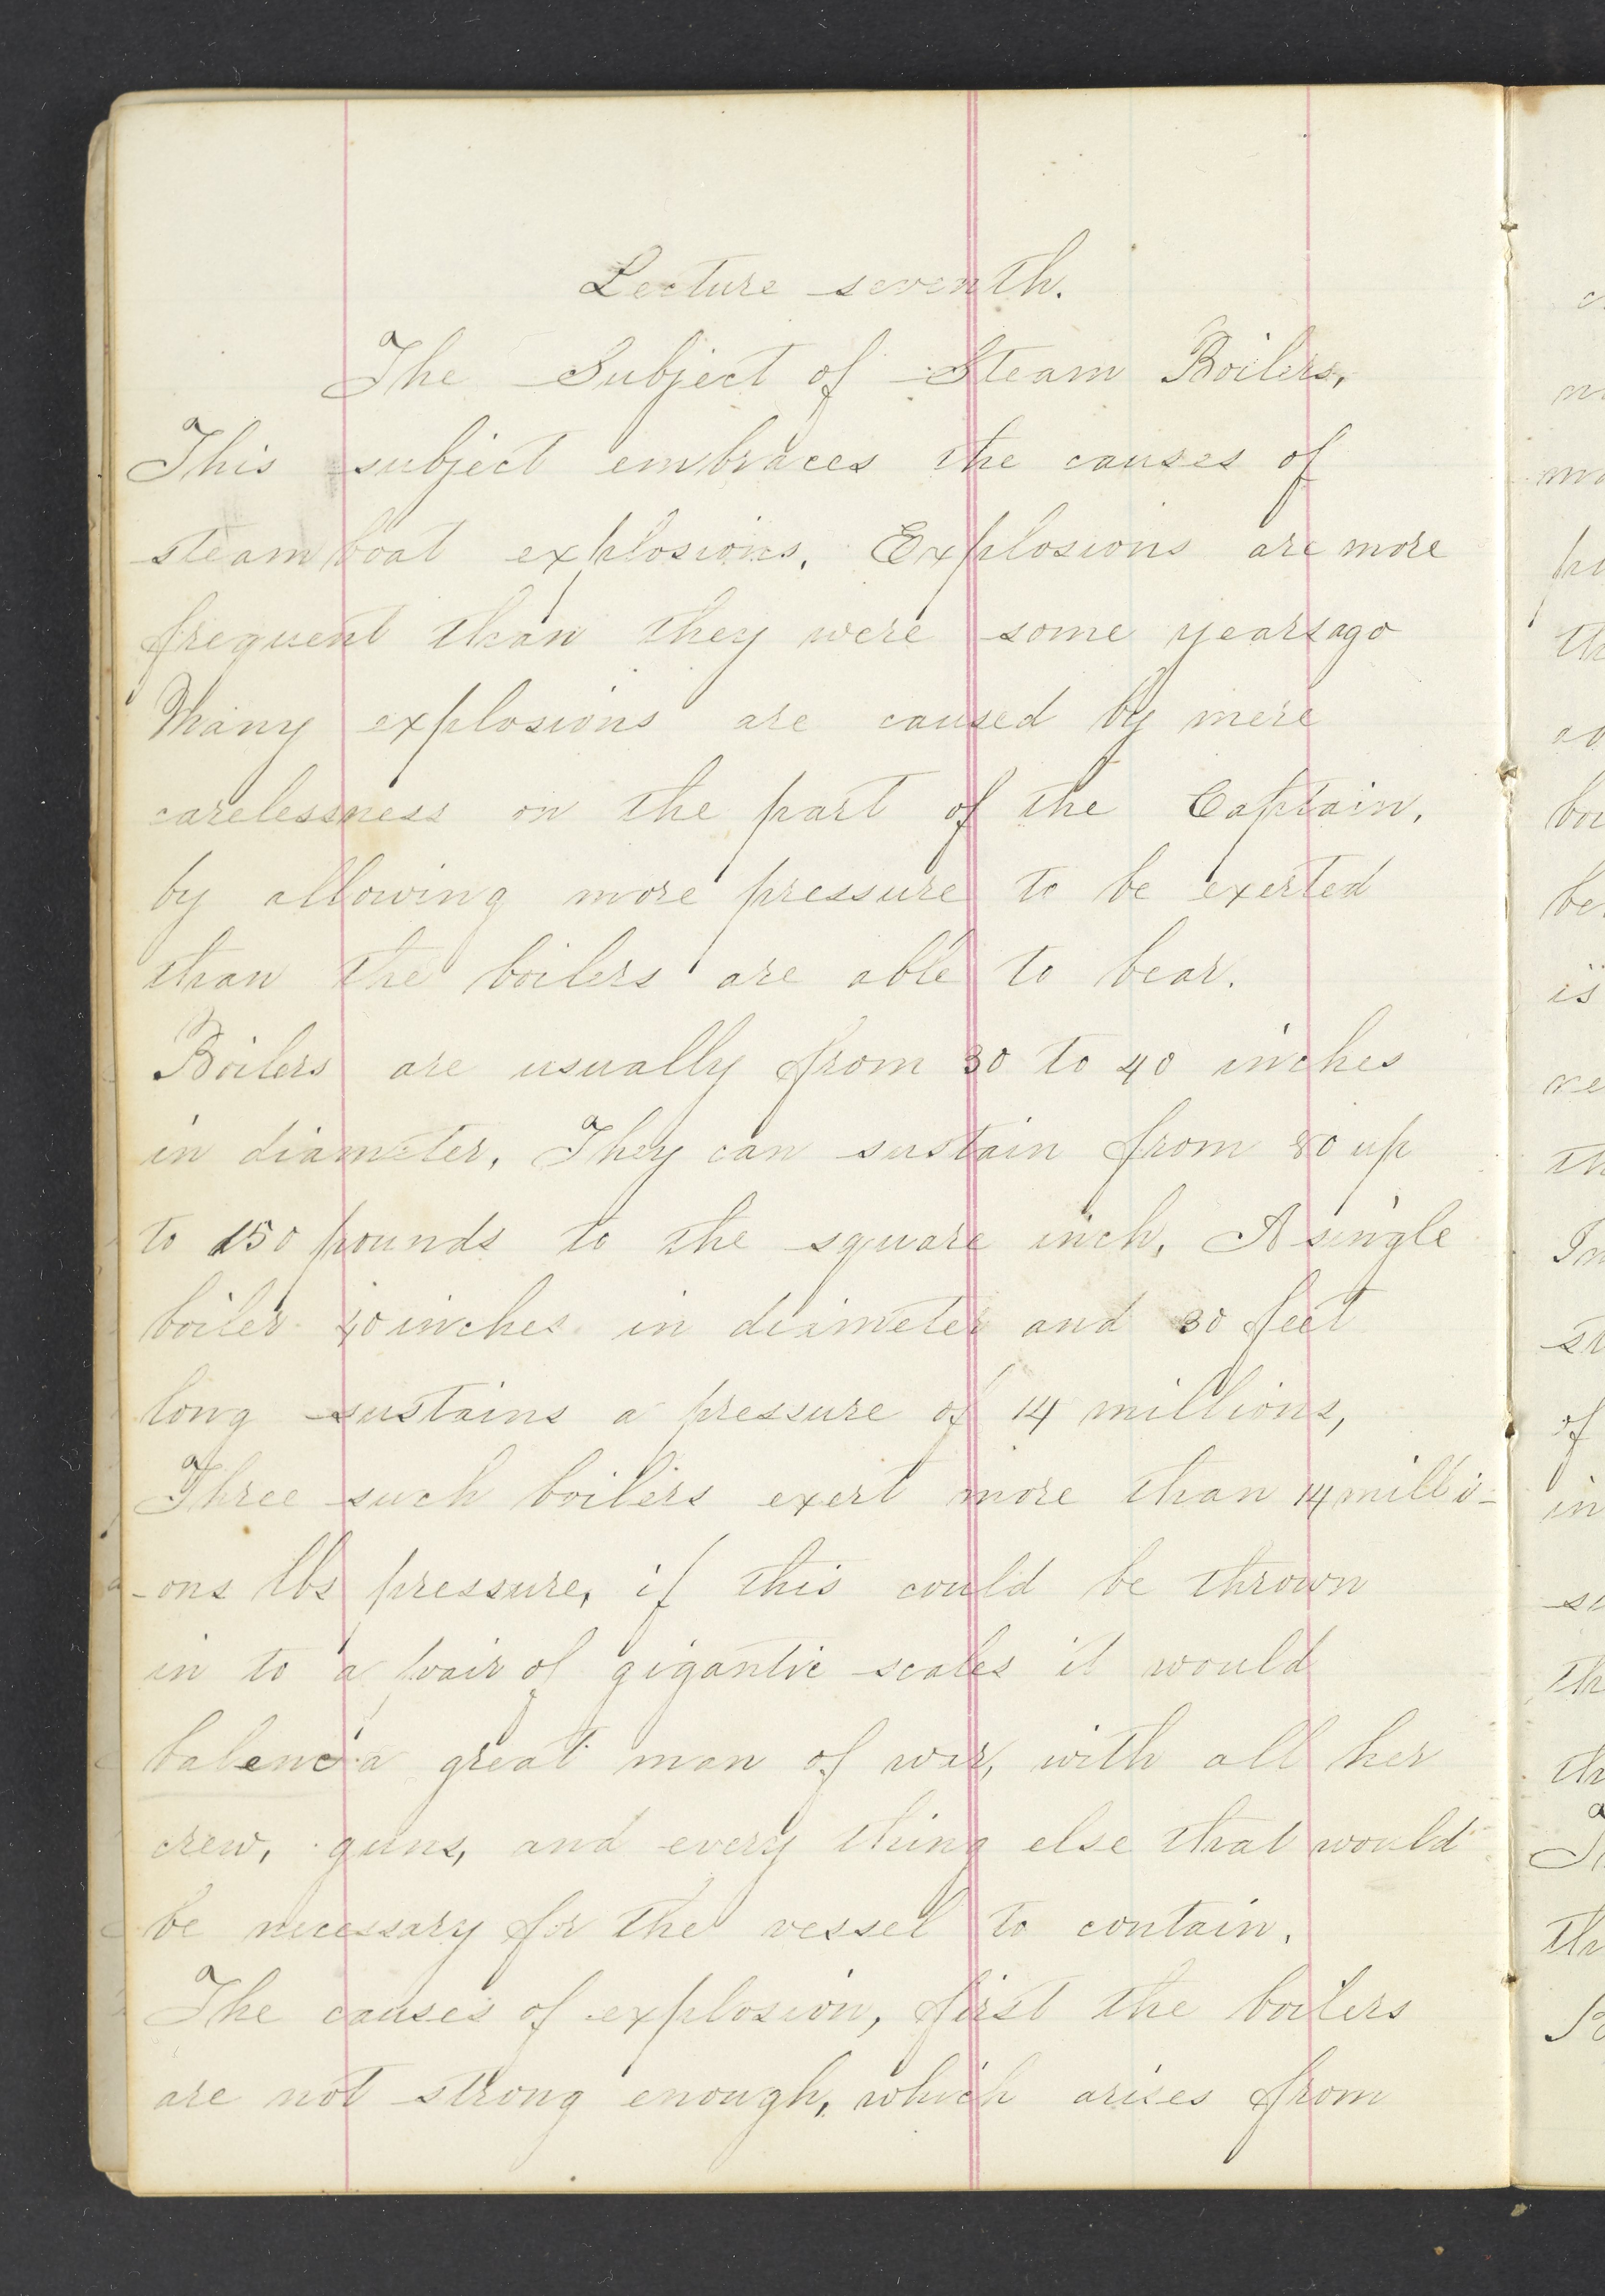 Lecture seventh.
The Subject of Steam Boilers,
This subject embraces the causes of
steam boat explosions. Explosions are more
frequent than they were some years ago
Many explosions are caused by mere
carelessness on the part of the Captain,
by allowing more pressure to be exerted
than the boilers are able to bear.
Boilers are usually from 30 to 40 inches
in diameter. They can sustain from 80 up
to 150 pounds to the square inch, A single
boiler 40 inches in diameter and 30 feet
long sustains a pressure of 14 millions,
Three such boilers exert more than 14 milli-
-ons lbs pressure, if this could be thrown
in to a pair of gigantic scales it would
balence a great man of war, with all her
crew, guns, and every thing else that would
be necessary for the vessel to contain.
The causes of explosion, first the boilers
are not strong enough, which arises from